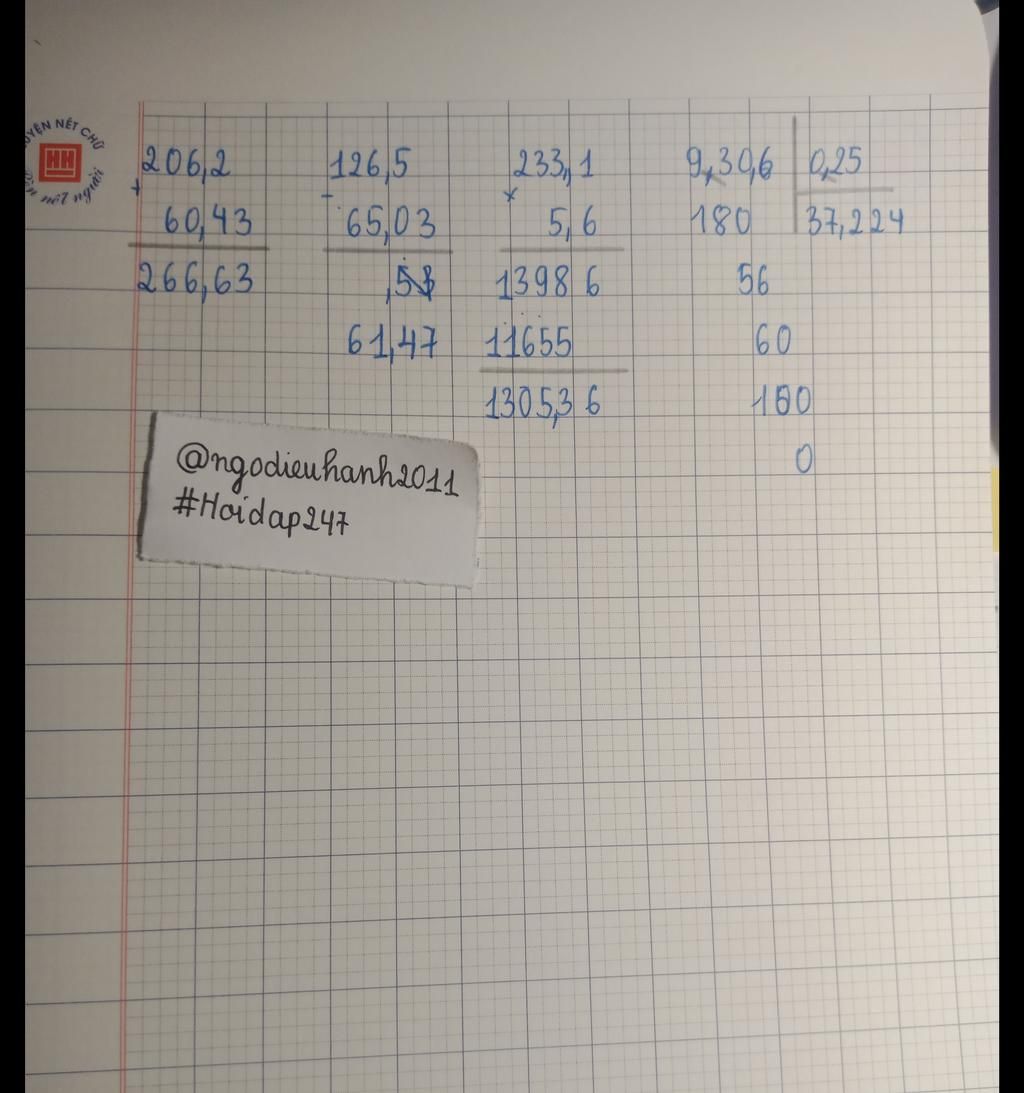 LUYỆN NÉT CHỮ
HH
Rèn nết người
206,2 126,5 233,1 9,30,6 0,25
+ - ×
60,43 65,03 5,6 180 37,224
266,63 1398 6 56
61,47 11655 60
1305,3 6 100
0
@ngodieuhanh2011
#Hoidap247